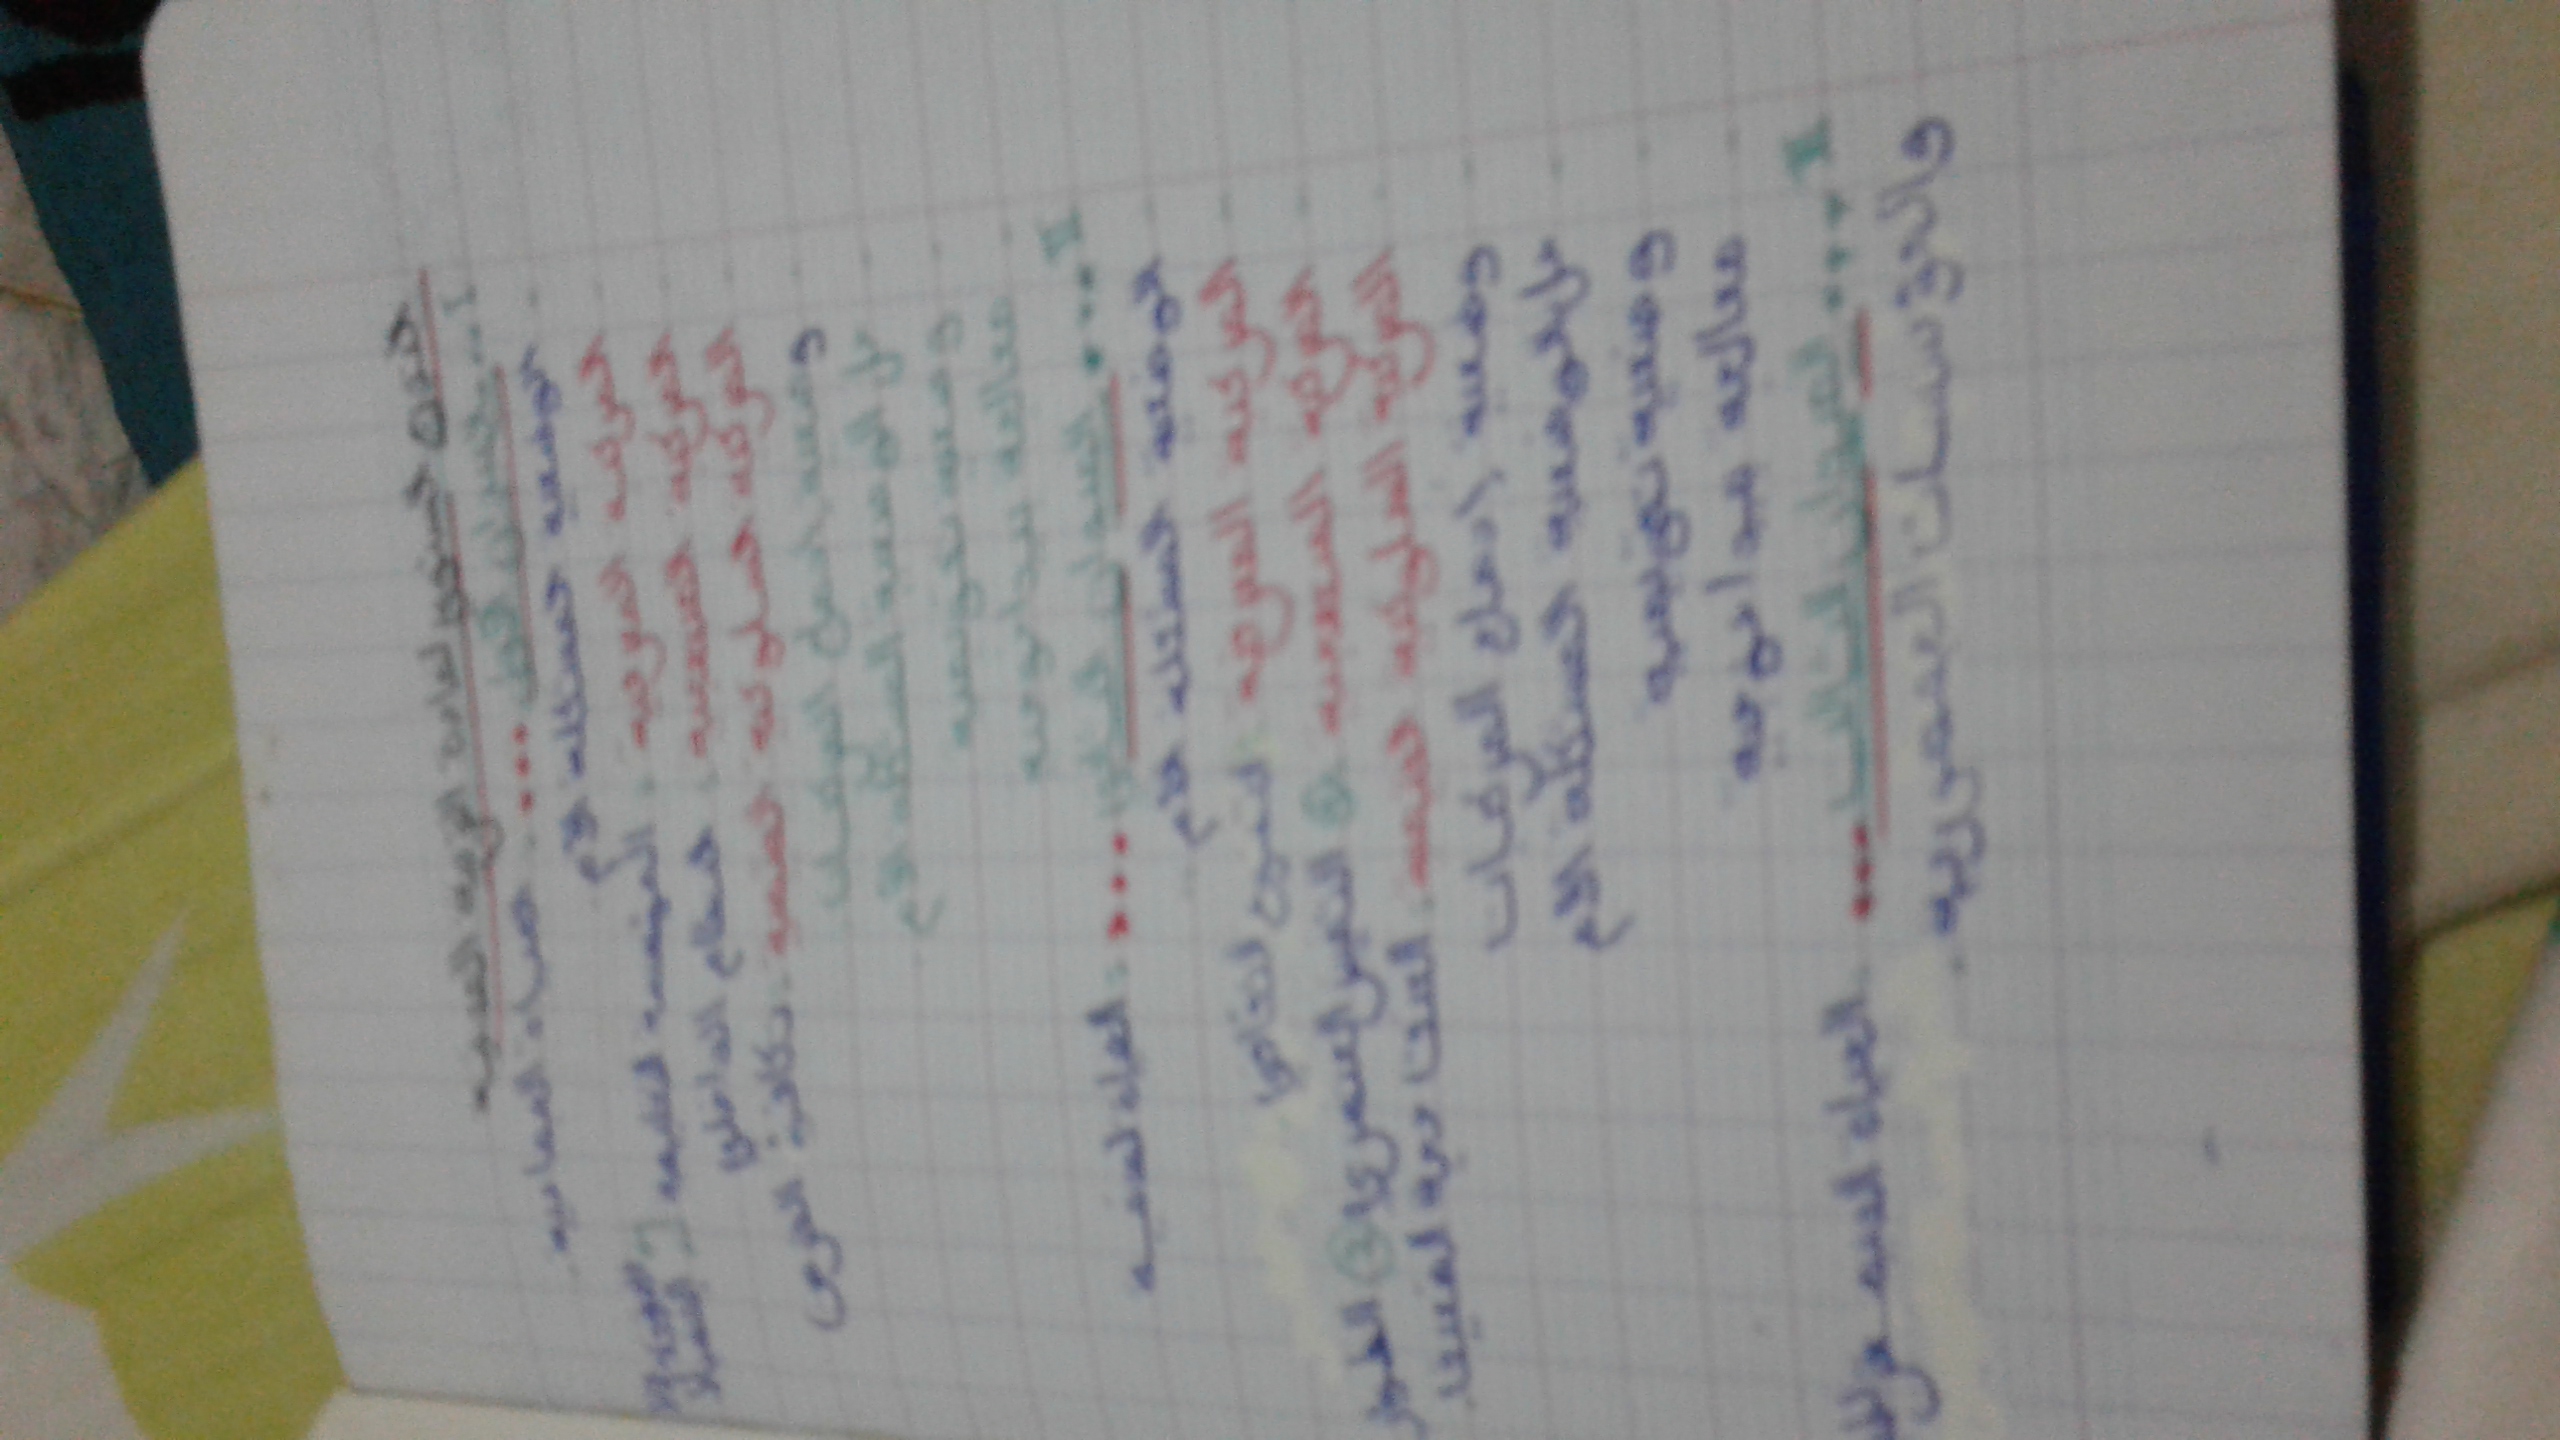 التدرج السنوي لمادة التربية المدنية
I ... الميدان الأول ... الحياة الجماعية
- الوضعية المشكلة الأم
- المركبة المعرفية : المؤسسة التعليمية
- المركبة المنهجية : النظام الداخلي
- المركبة السلوكية القيمية : تكافؤ الفرص
- وضعية إدماج المركبات
- حل الوضعية المشكلة الأم
- وضعية تقويمية
- معالجة بيداغوجية
II ... الميدان الثاني ... : الحياة المدنية
- الوضعية المشكلة الأم
- المركبة المعرفية : التنوع الثقافي
- المركبة المنهجية ① التمييز العنصري ②
- المركبة السلوكية القيمية :
- وضعية إدماج المركبات
- حل الوضعية المشكلة الأم
- وضعية تقويمية
- معالجة بيداغوجية
III ... الميدان الثالث ... الحياة
والمؤسسات الجمهورية .